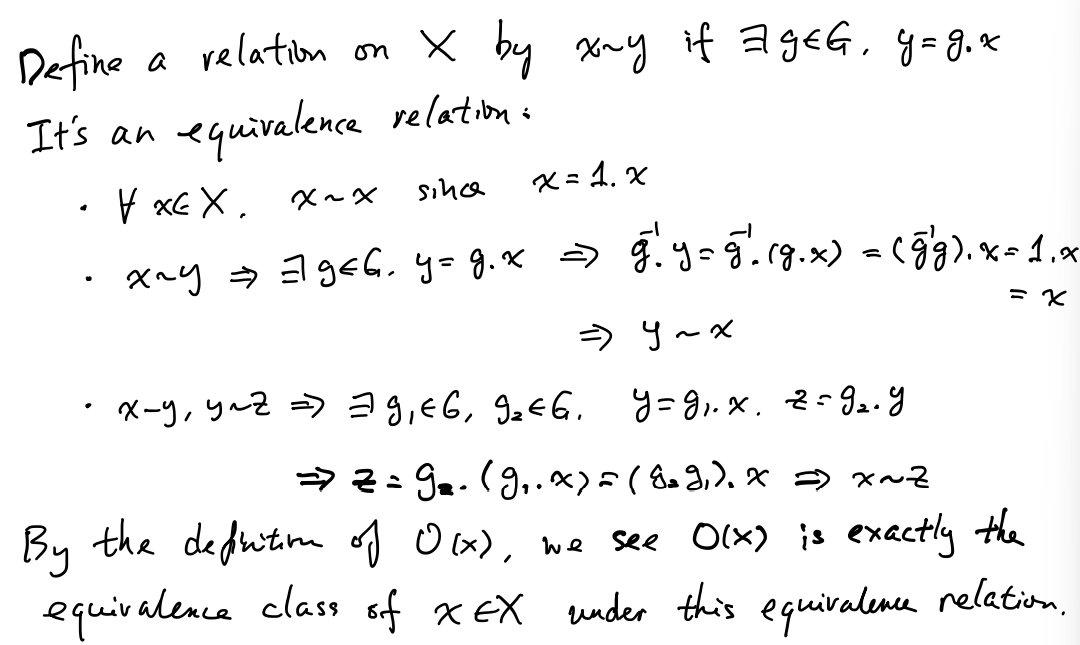 Define a relation on X by x~y if ∃ g∈G. y=g.x
It's an equivalence relation:
· ∀ x∈X. x~x since x=1.x
· x~y ⇒ ∃ g∈G. y=g.x ⇒ g⁻¹.y=g⁻¹.(g.x) =(g⁻¹g).x=1.x
= x
⇒ y~x
· x-y, y~z ⇒ ∃ g₁∈G, g₂∈G. y=g₁.x. z=g₂.y
⇒ z=g₂.(g₁.x)=(g₂g₁).x ⇒ x~z
By the definition of O(x), we see O(x) is exactly the
equivalence class of x∈X under this equivalence relation.